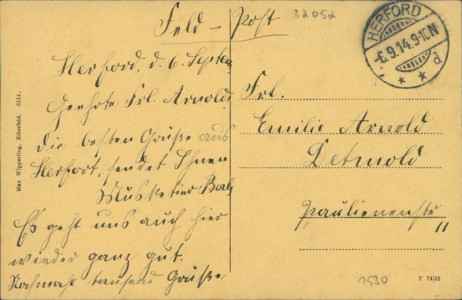 Feld - Post
32052
HERFORD
-6.9.14.9-10N
* * d
Herford, d. 6. Septem
Geehrte Frl. Arnold!
Die besten Grüße aus
Herfort, sendet Ihnen
Musketier
Es geht uns auch hier
wieder ganz gut.
Nochmals tausend Grüße
Frl.
Emilie Arnold
Detmold
Paulinenstr
11
Max Wipperling, Elberfeld. 3114.
1530